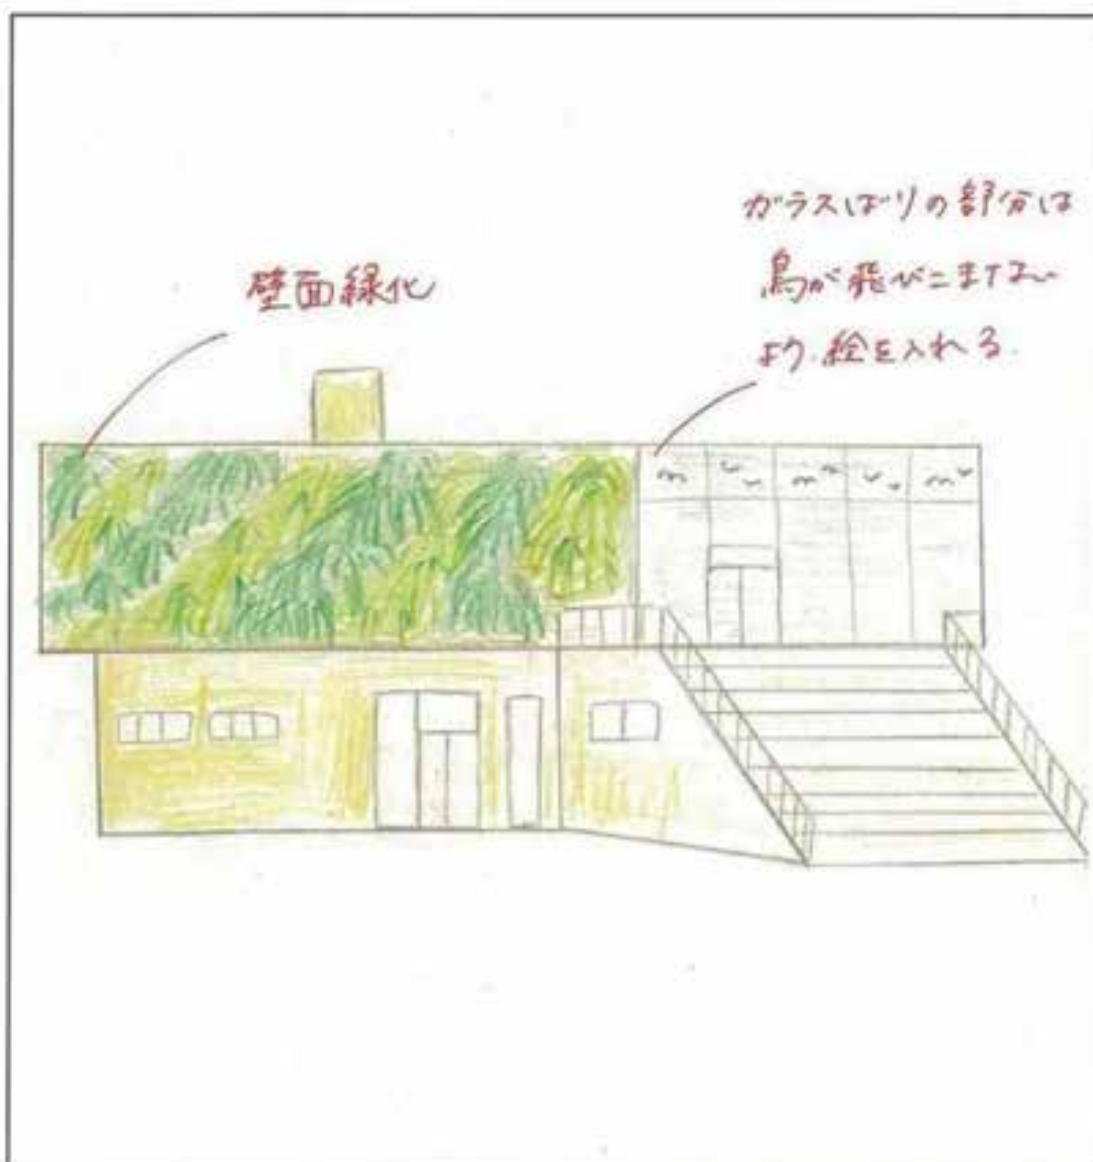 壁面緑化
ガラスばりの部分は
鳥が飛びこまない
よう、絵を入れる。